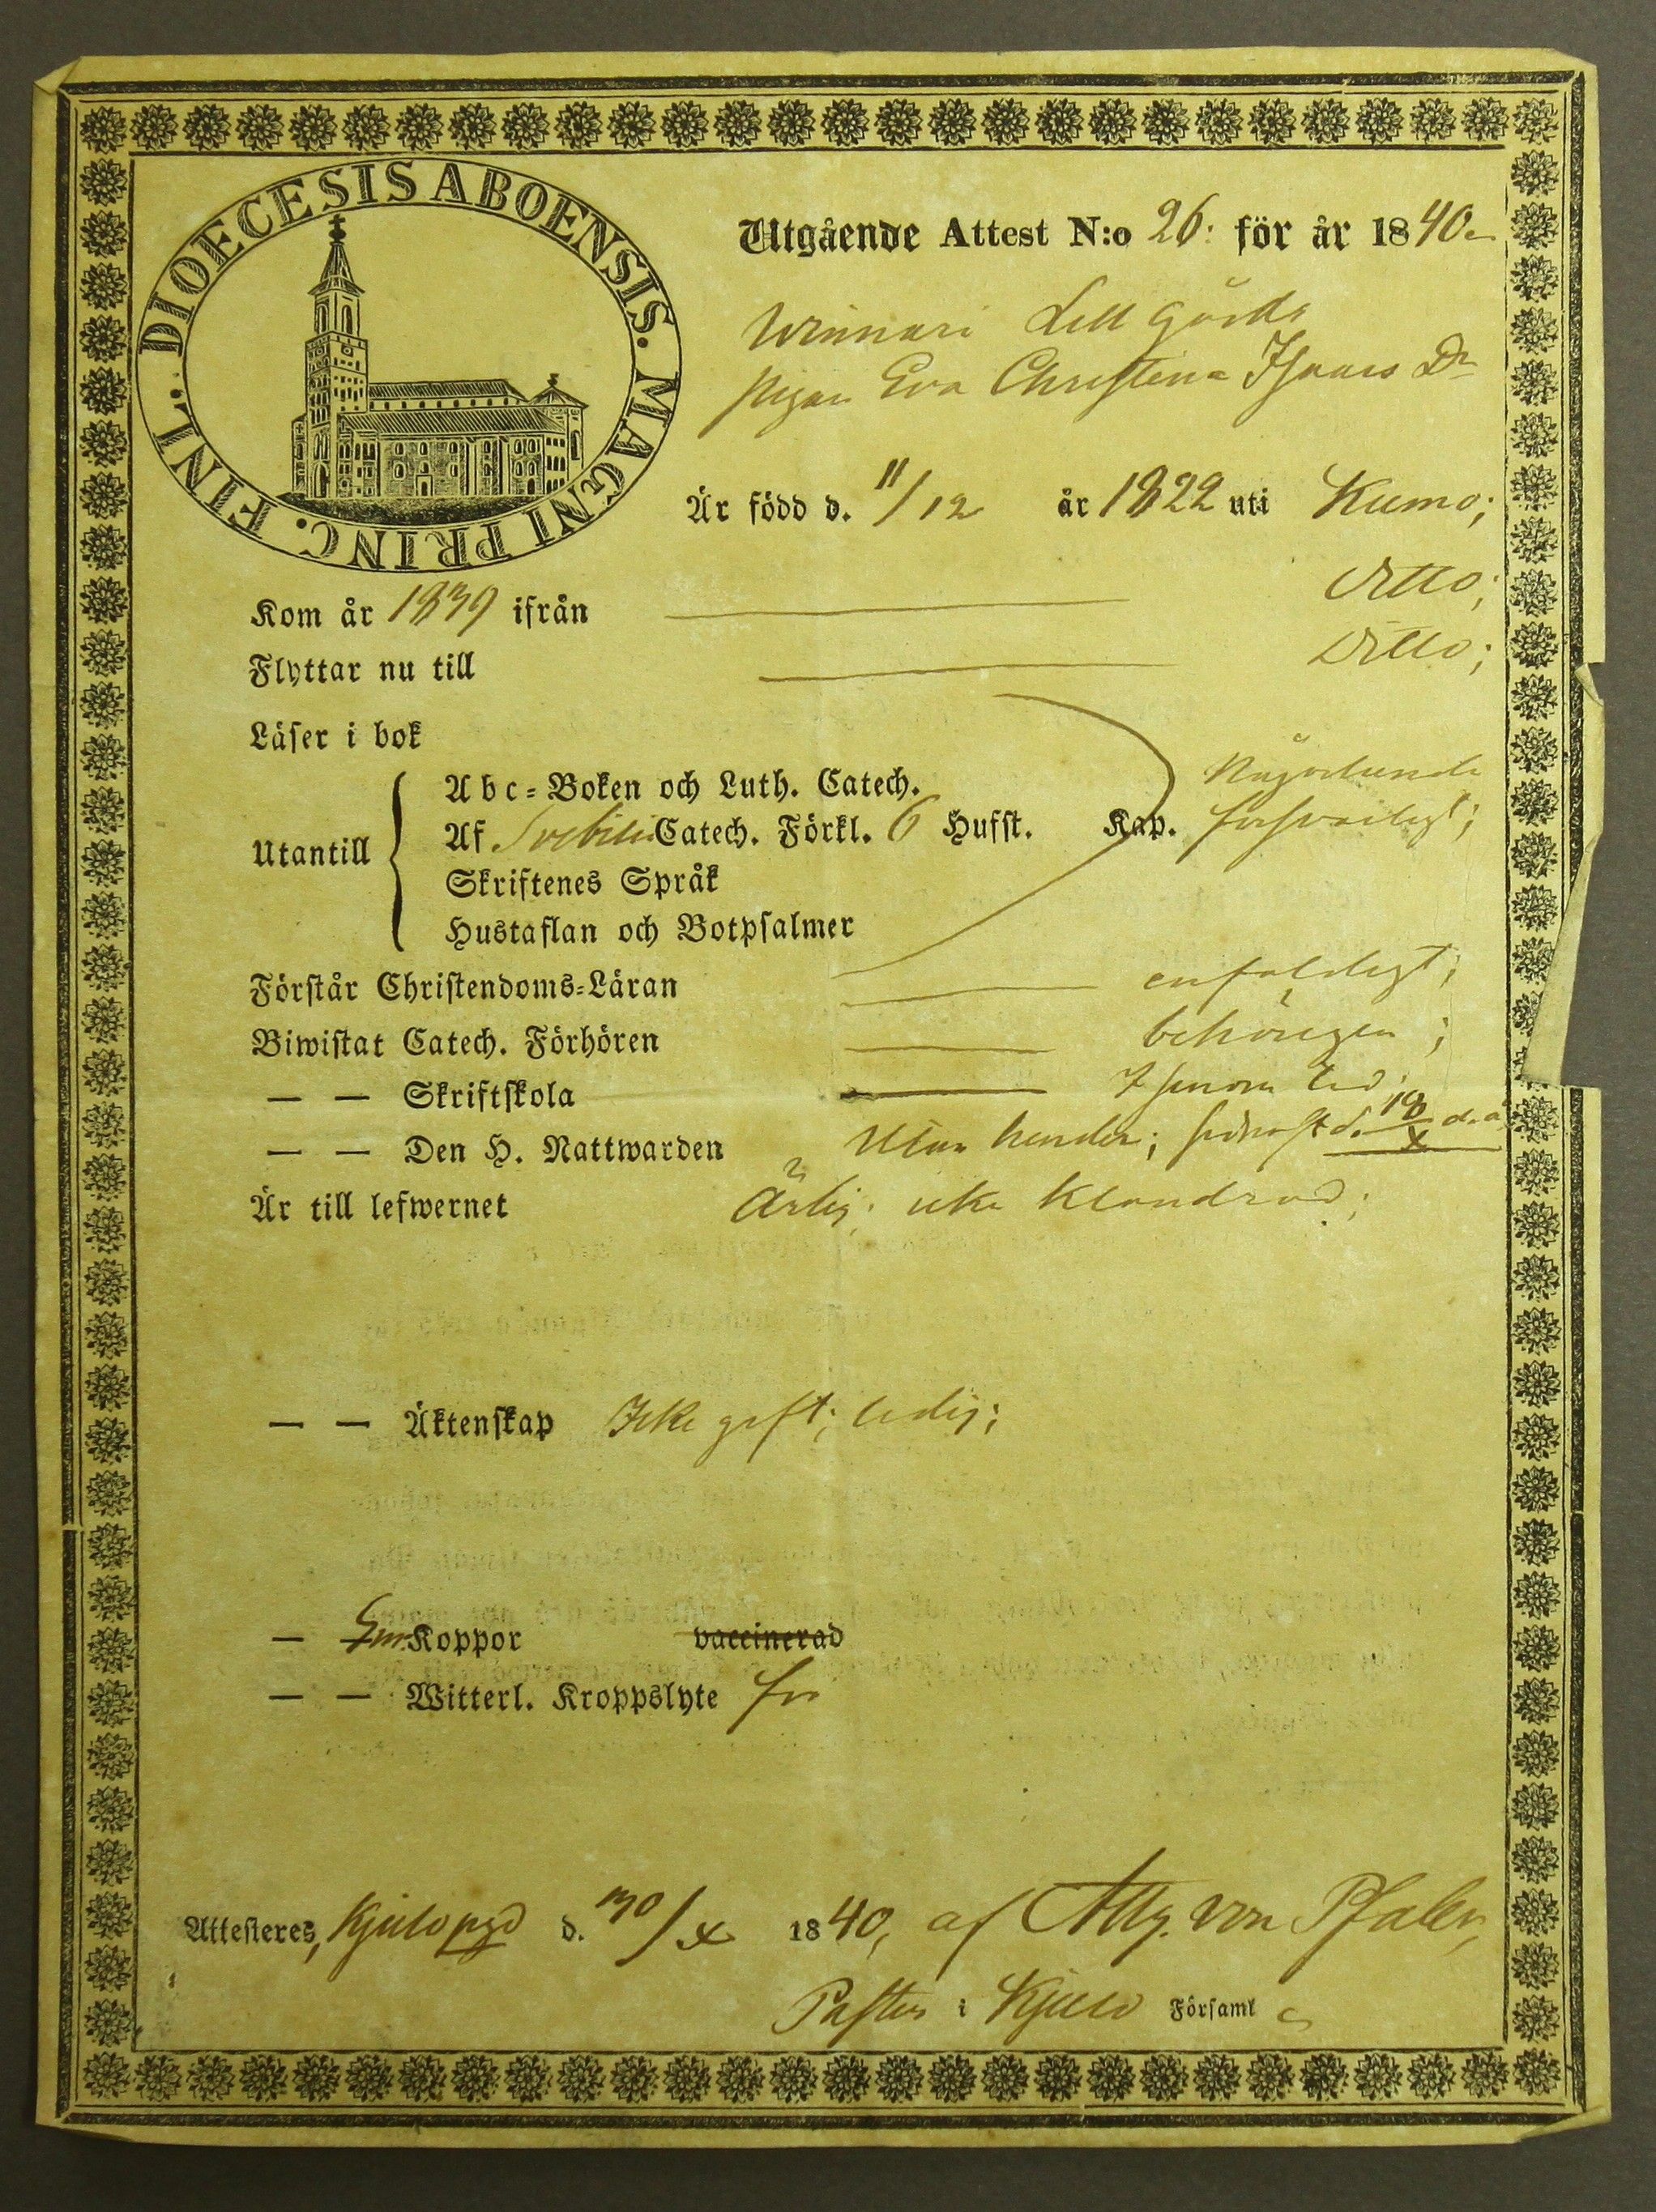 DIOECESIS ABOENSIS. MAGNI PRINC. FINL.
Utgående Attest N:o 26: för år 1840
Winnari Lill Gårds
pigan Eva Christina Isaacs Dr
Är född d. 11/12 år 1822 uti Kumo;
Kom år 1839 ifrån Ditto;
Flyttar nu till Ditto;
Läser i bok
Utantill
Abc-Boken och Luth. Catech. Någorlunda
Af Svebilii Catech. Förkl. 6 Hufst. Kap. försvarligt;
Skriftenes Språk
Hustaflan och Botpsalmer
Förstår Christendoms-Läran enfaldigt;
Biwistat Catech. Förhören behörigen;
— — Skriftskola
— — Den H. Nattwarden Utan hinder; sednast d.
Är till lefwernet Ärlig; icke klandrad;
— — Äktenskap Icke gift; ledig;
— Koppor vaccinerad
— — Witterl. Kroppslyte fri
Attesteres, Kjulo pgd d. 30/X 1840, af Aug. von Pfaler,
Pastor i Kjulo Församl